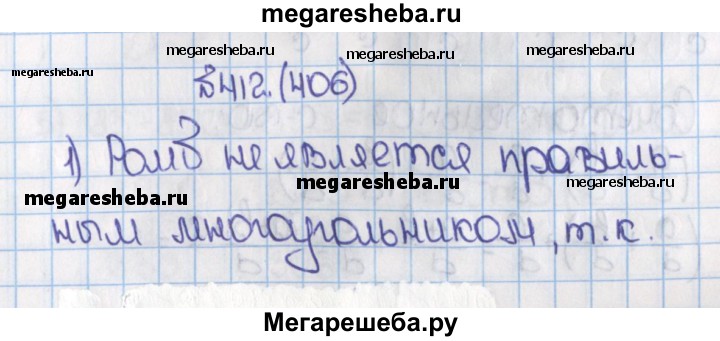 megaresheba.ru
megaresheba.ru megaresheba.ru
megaresheba.ru
№412.(406)
1) Ромб не является правиль-
megaresheba.ru megaresheba.ru megaresheba.ru
ным многоугольником, т.к.
Мегарешеба.ру